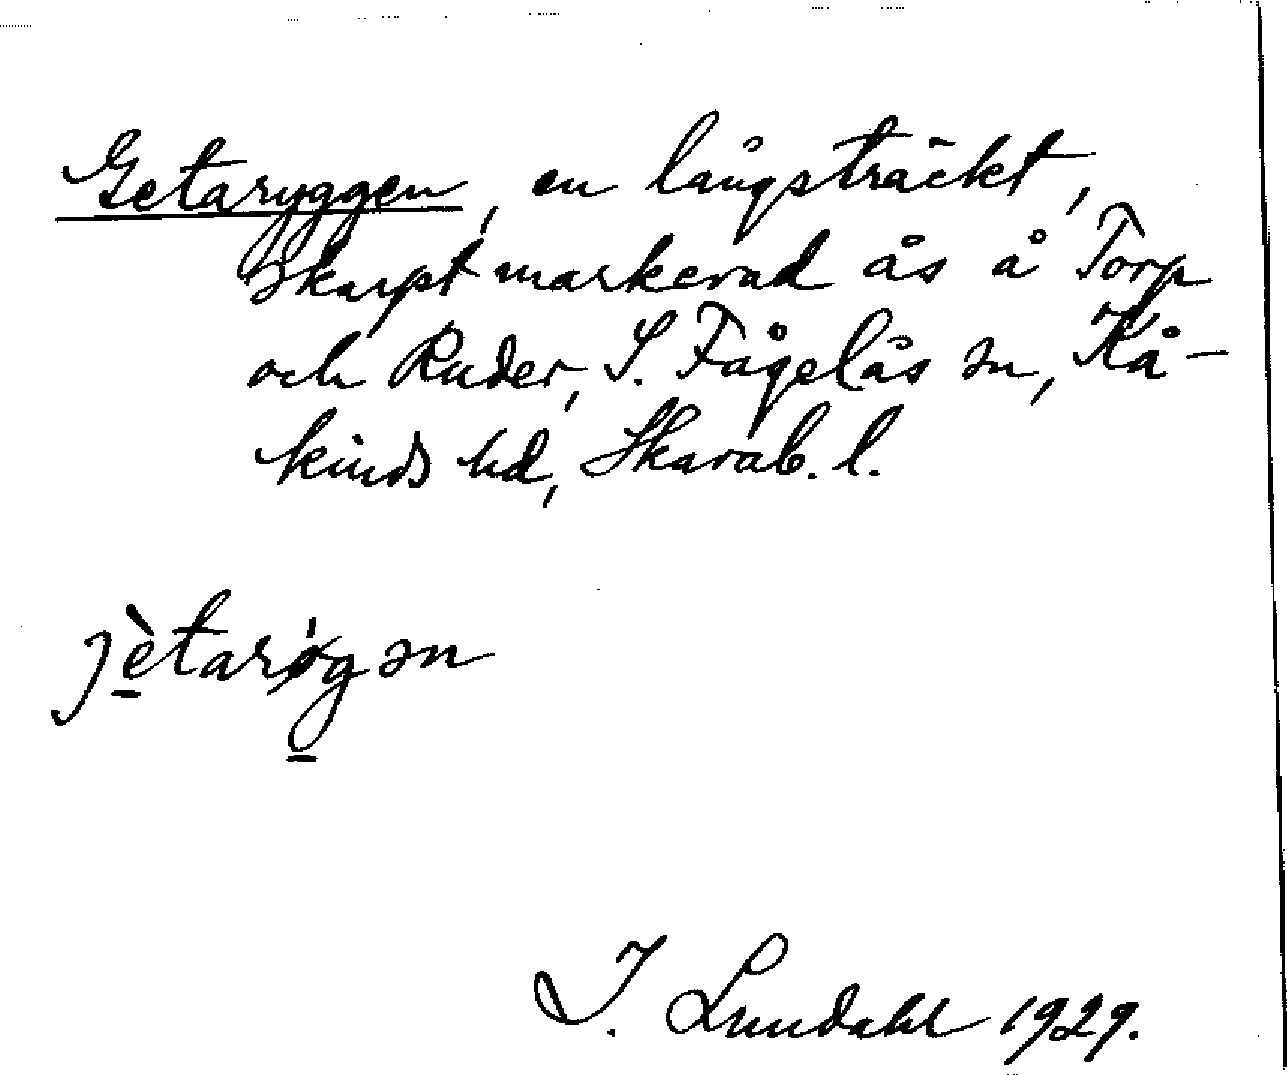 Getaryggen, en långsträckt,
skarpt markerad ås å Torp
och Ruder, S. Fågelås sn, Kå-
kinds hd, Skarab. l.
jètarø̀gən
I. Lundahl 1929.